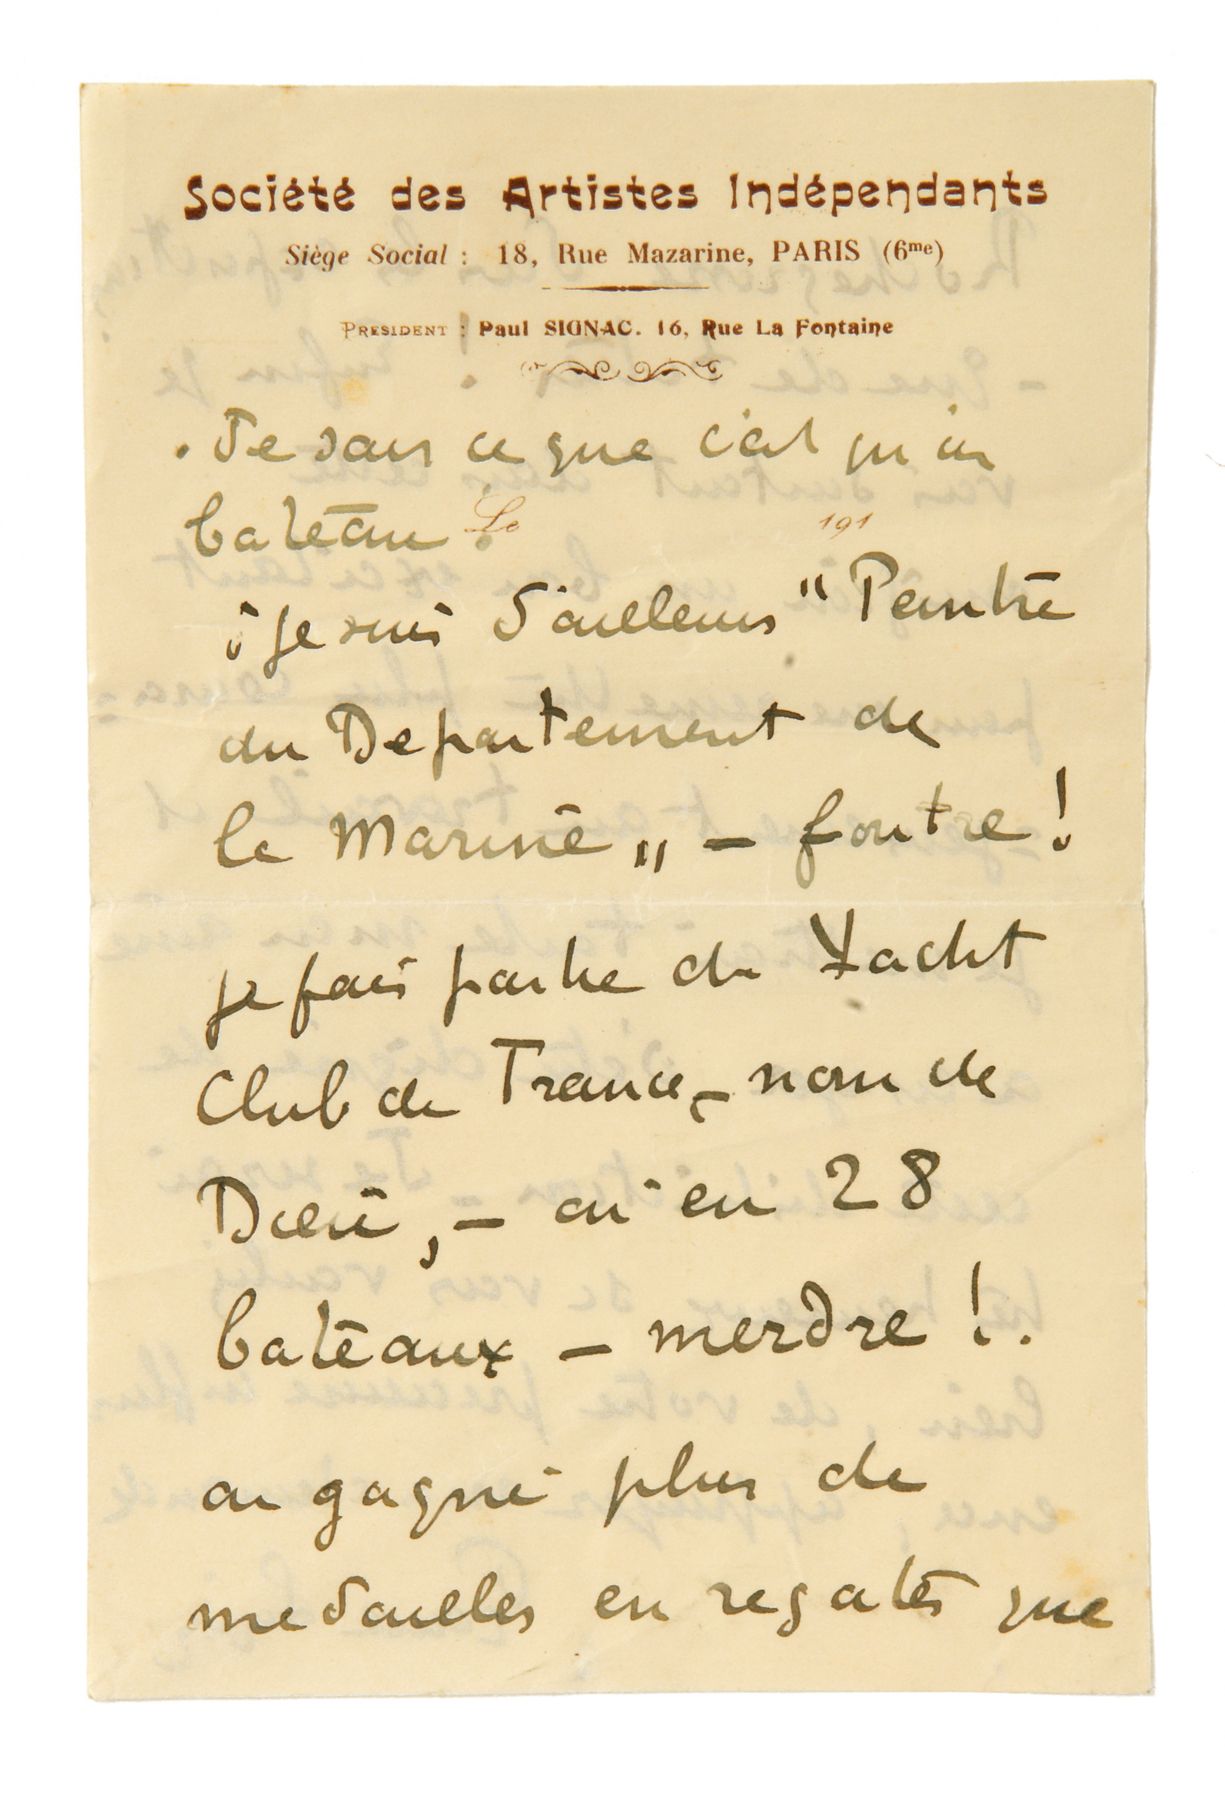 Société des Artistes Indépendants
Siège Social : 18, Rue Mazarine, PARIS (6me)
PRESIDENT : Paul SIGNAC. 16, Rue La Fontaine
. Je sais ce que c'est qu'un
bateau.
Le 191
je suis d'ailleurs "Peintre
du Departement de
la Marine" – foutre !
je fais partie du Yacht
Club de France, – nom de
Dieu, – ai eu 28
bateaux – merdre !.
ai gagné plus de
medailles en regates que